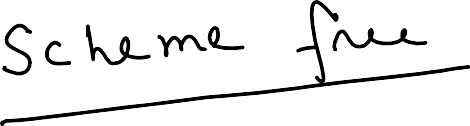 Scheme free